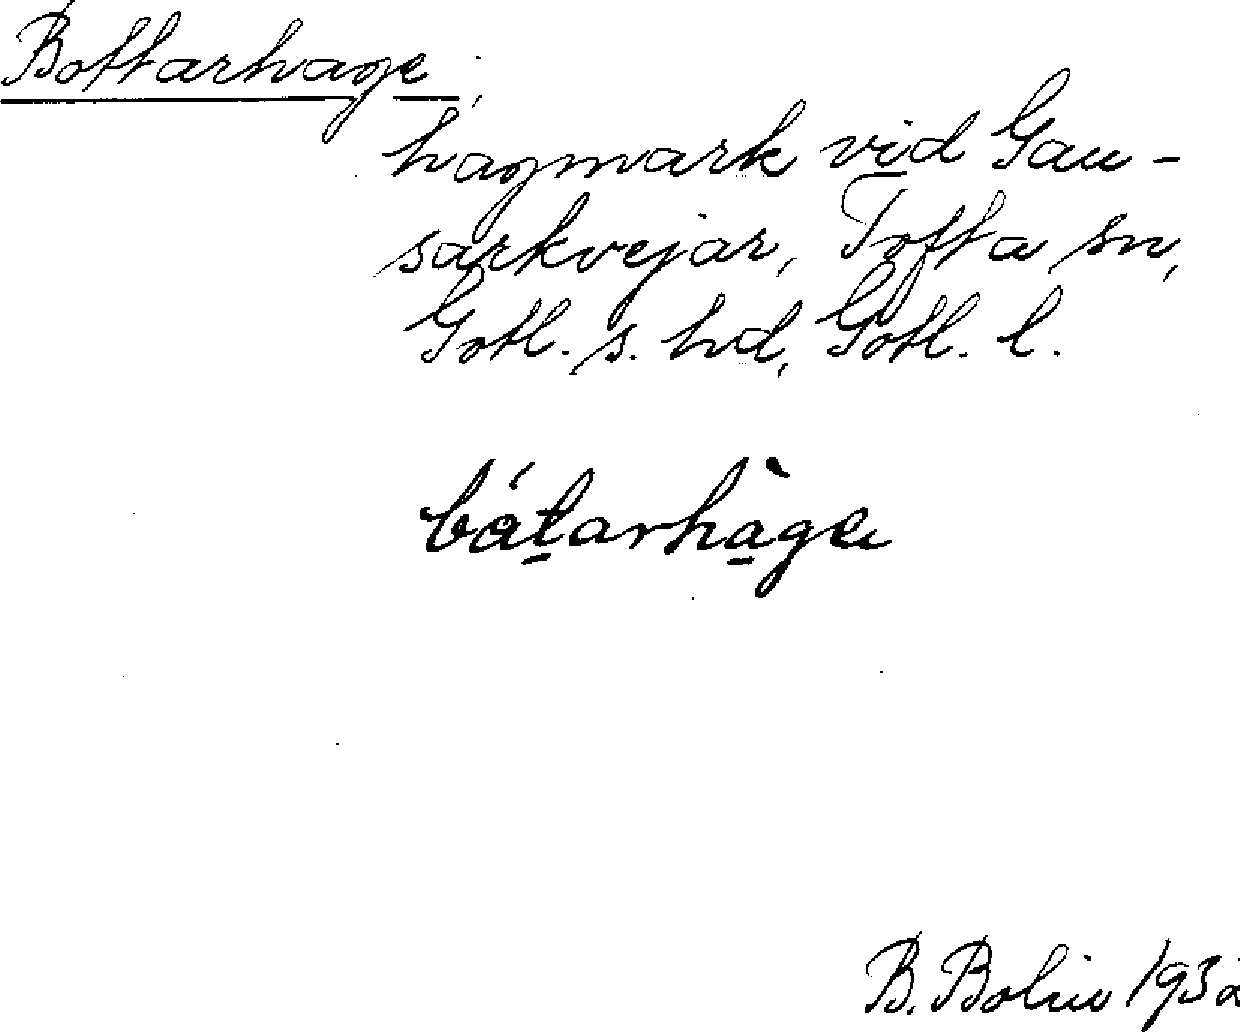 Bottarhage,
hagmark vid Gau-
sarkvejar, Tofta sn,
Gotl. s. hd, Gotl. l.
bátarhàge
B. Bolin 1932